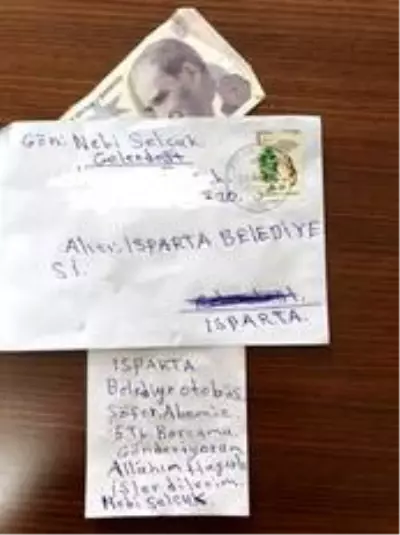 Gön: Nebi Selcuk
Gelendost
Alıcı. ISPARTA BELEDİYE
Sİ.
ISPARTA.
ISPARTA
Belediye otobüs
Şöför. Abemie
5 TL Borcumu
Gönderiyorum
Allahım Hayırlı
işler dilerim.
Nebi Selcuk